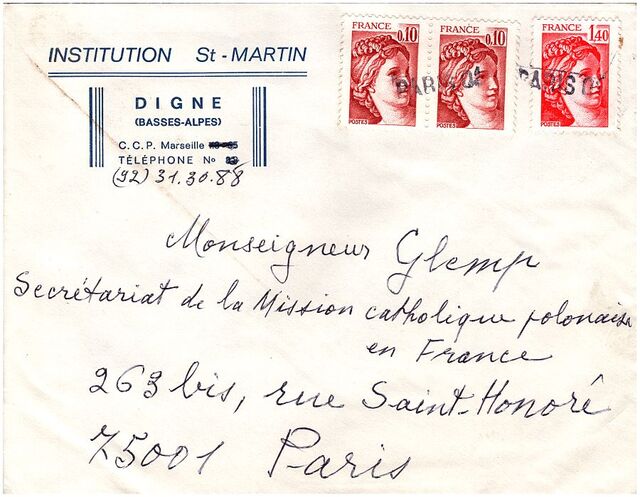 INSTITUTION St-MARTIN
DIGNE
(BASSES-ALPES)
C.C.P. Marseille
TÉLÉPHONE No
(92) 31.30.88
FRANCE
0,10
POSTES
FRANCE
0,10
POSTES
FRANCE
1,40
POSTES
PARIS 04
PARIS
Monseigneur Glemp
Secrétariat de la Mission catholique polonaise
en France
263 bis, rue Saint-Honoré
75001 Paris